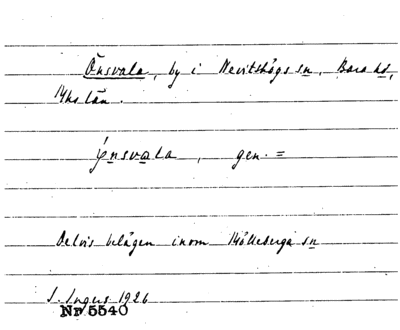 Önsvala, by i Nevitshögs sn, Bara hd,
Mhs län.
ýnsvala, gen. =
Delvis belägen inom Mölleberga sn
S. Ingers 1926
Nr 5540